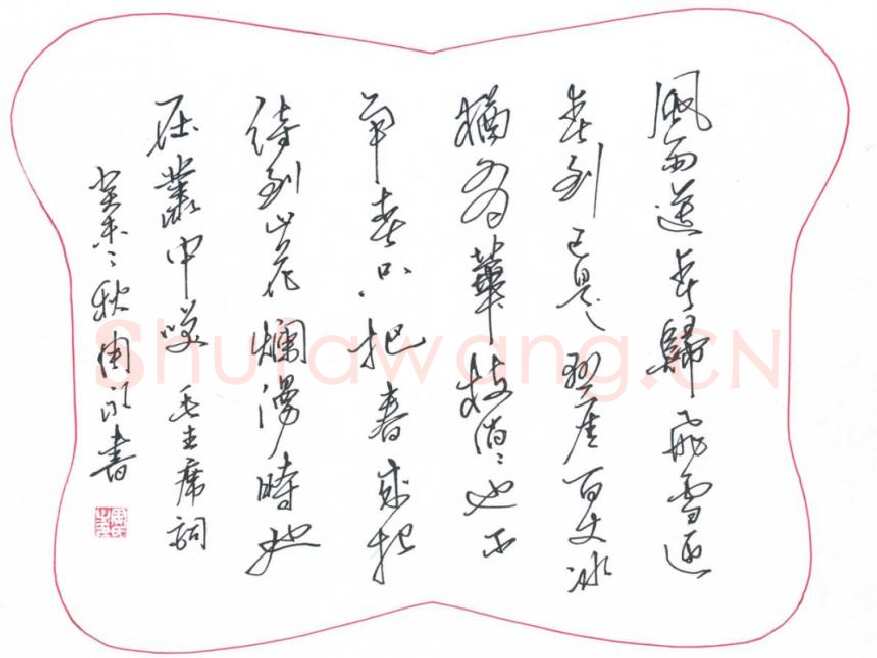 風雨送春歸飛雪迎
春到已是懸崖百丈冰
猶有華枝俏俏也不
爭春只把春來報
待到山花爛漫時她
在叢中咲 毛主席詞
癸未之秋周書
Shufawang.CN